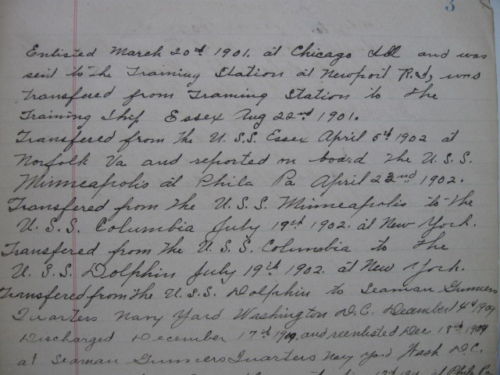 3
Enlisted March 20th 1901. at Chicago Ill and was
sent to the Training Station at Newport R.I, was
transfered from Training Station to the
Training Ship Essex Aug 22nd 1901.
Transfered from the U.S.S. Essex April 5th 1902 at
Norfolk Va and reported on board the U.S.S.
Minneapolis at Phila Pa April 22nd 1902.
Transfered from the U.S.S Minneapolis to the
U.S.S. Columbia July 19th 1902. at New York.
Transfered from the U.S.S. Columbia to the
U.S.S Dolphin July 19th 1902. at New York.
Transfered from the U.S.S. Dolphin to Seaman Gunners
Quarters Navy Yard Washington D.C. December 4th 1904
Discharged December 17th 1904, and reenlisted Dec 18th 1904
at Seaman Gunners Quarters Navy Yard Wash D.C.